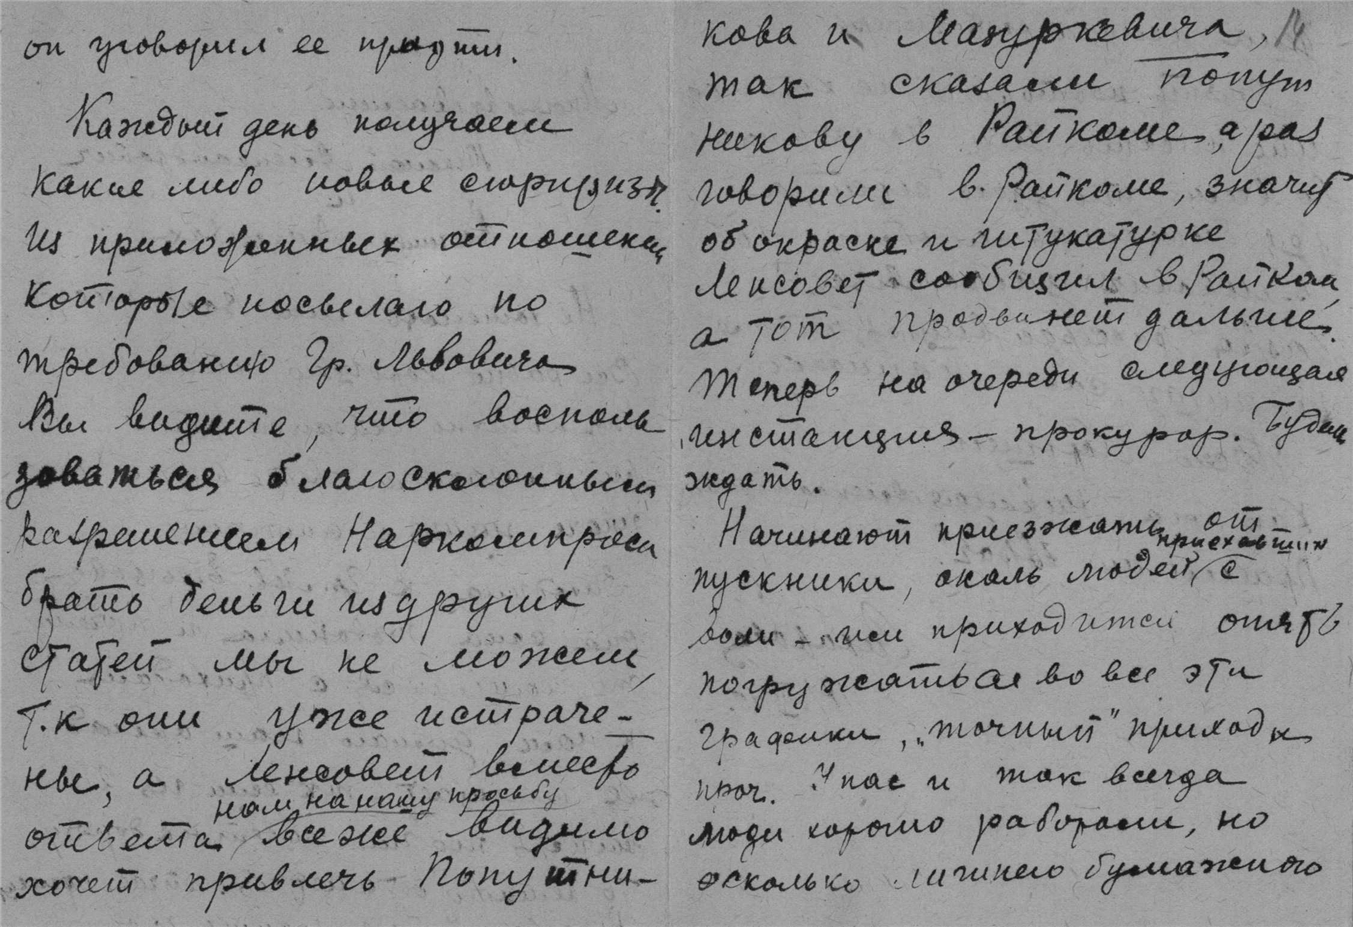 он уговорил ее придти.
Каждый день получаем
какие либо новые сюрпризы.
Из приложенных отношений
которые посылаю по
требованию Гр. Львовича
Вы видите, что восполь
зоваться благосклонным
разрешением Наркомпроса
брать деньги из других
статей мы не можем,
т.к они уже истраче-
ны, а Ленсовет вместо
нам на нашу просьбу
ответа все же видимо
хочет привлечь Попутни-
кова и Мазуркевича, 14
так сказали Попут
никову в Райкоме, а раз
говорили в Райкоме, значит
об окраске и штукатурке
Ленсовет сообщил в Райком,
а тот продвинет дальше.
Теперь на очереди следующая
инстанция – прокурор. Будем
ждать.
Начинают приезжать от
приехавших
пускники, околь людей с
воли – им приходится опять
погружаться во все эти
графики, "точный" приход и
проч. У нас и так всегда
люди хорошо работали, но
сколько лишнего бумажного